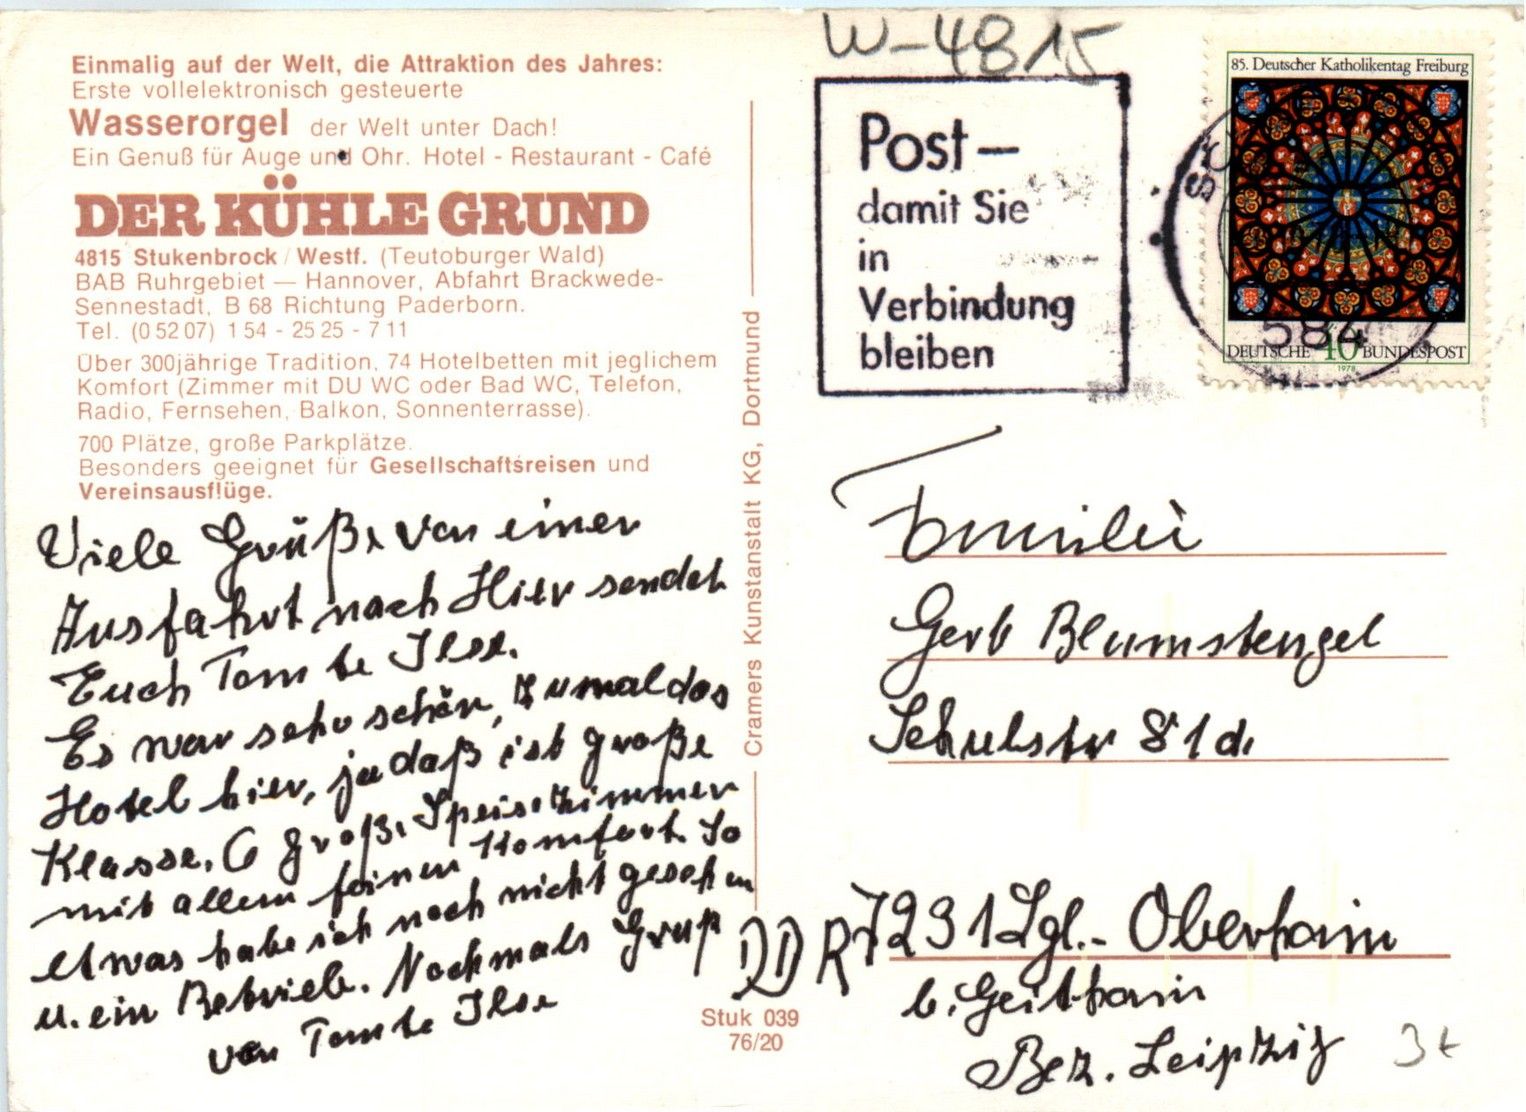 W-4815
Einmalig auf der Welt, die Attraktion des Jahres:
Erste vollelektronisch gesteuerte
Wasserorgel der Welt unter Dach!
Ein Genuß für Auge und Ohr. Hotel - Restaurant - Café
DER KÜHLE GRUND
4815 Stukenbrock / Westf. (Teutoburger Wald)
BAB Ruhrgebiet — Hannover, Abfahrt Brackwede-
Sennestadt, B 68 Richtung Paderborn.
Tel. (0 52 07) 1 54 - 25 25 - 7 11
Über 300jährige Tradition, 74 Hotelbetten mit jeglichem
Komfort (Zimmer mit DU WC oder Bad WC, Telefon,
Radio, Fernsehen, Balkon, Sonnenterrasse).
700 Plätze, große Parkplätze.
Besonders geeignet für Gesellschaftsreisen und
Vereinsausflüge.
Viele Grüße von einer
Ausfahrt nach Hier sendet
Euch Tante Ilse.
Es war sehr schön, zumal das
Hotel hier, ja daß ist große
Klasse. 6 große Speisezimmer
mit allem feinen Komfort. So
etwas habe ich noch nicht gesehen
u. ein Betrieb. Nochmals Gruß
von Tante Ilse
Cramers Kunstanstalt KG, Dortmund
Stuk 039
76/20
Post –
damit Sie
in
Verbindung
bleiben
85. Deutscher Katholikentag Freiburg
584
DEUTSCHE 40 BUNDESPOST
1978
Familie
Gerb Blumstengel
Schulstr 81d.
DDR 7231 Lgl.- Oberhain
b. Geithain
Bez. Leipzig
3t